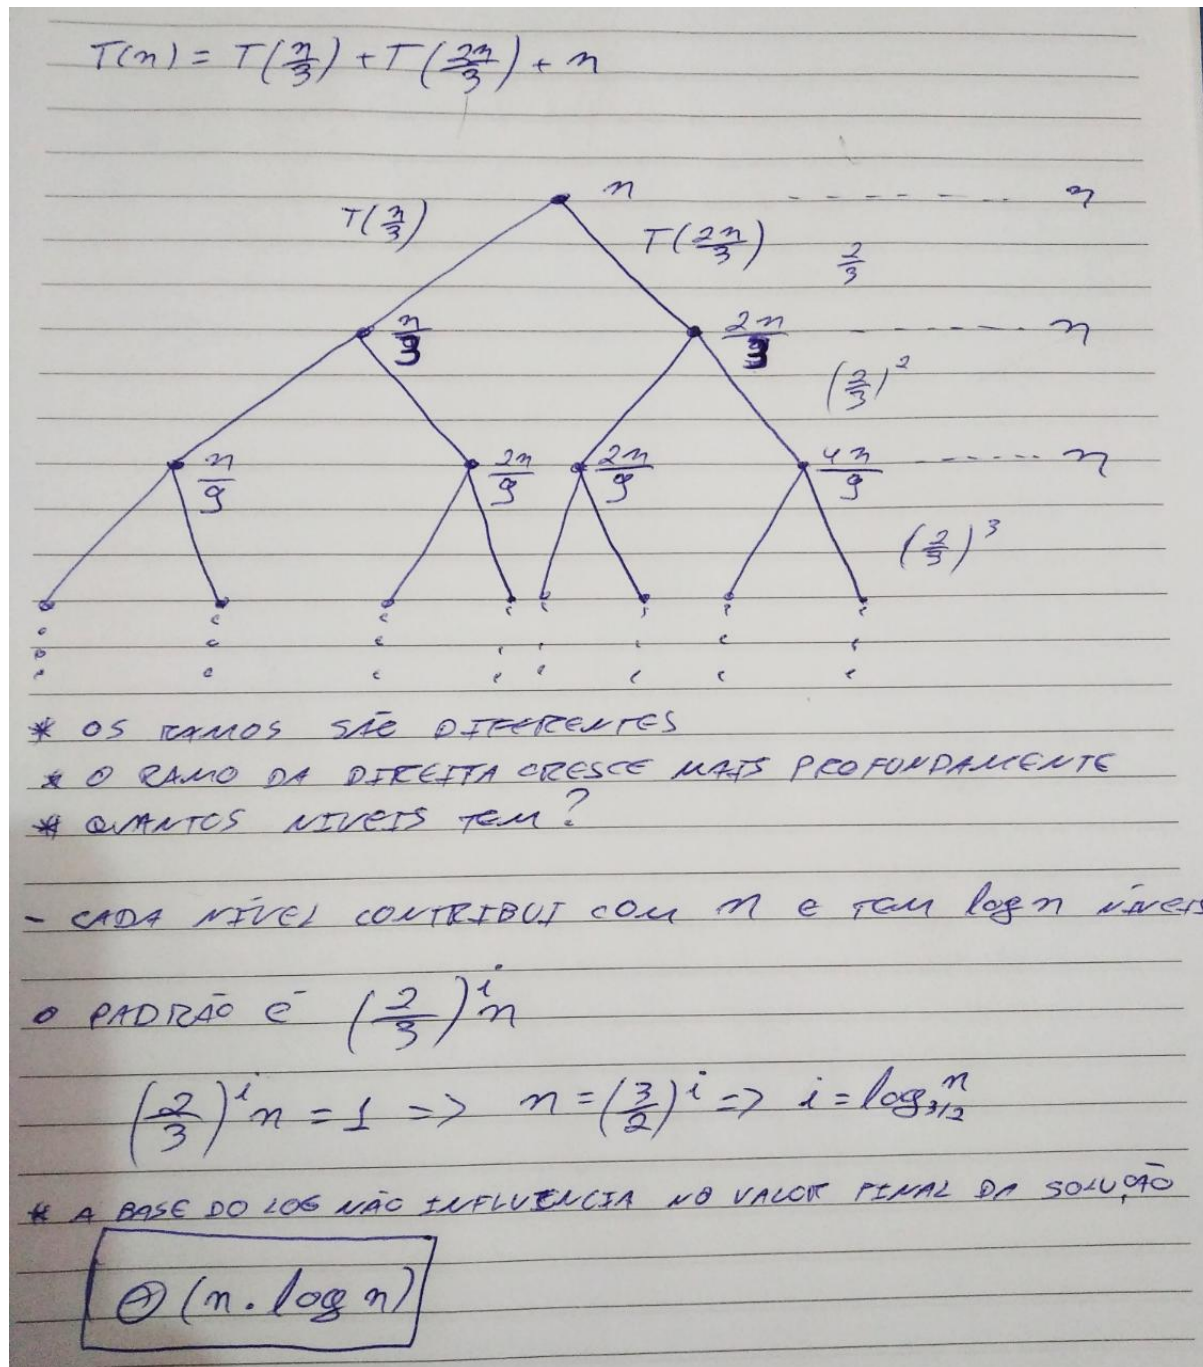 T(n) = T(n/3) + T(2n/3) + n
n - - - - - n
T(n/3) T(2n/3) 2/3
n/3 2n/3 - - - - - n
(2/3)^2
n/9 2n/9 2n/9 4n/9 - - - - - n
(2/3)^3
* OS RAMOS SÃO DIFERENTES
* O RAMO DA DIREITA CRESCE MAIS PROFUNDAMENTE
* QUANTOS NIVEIS TEM?
- CADA NÍVEL CONTRIBUI COM n e TEM log n NÍVEIS
o PADRÃO É (2/3)^i n
(2/3)^i n = 1 => n = (3/2)^i => i = log_{3/2} n
* A BASE DO LOG NÃO INFLUENCIA NO VALOR FINAL DA SOLUÇÃO
Θ(n . log n)